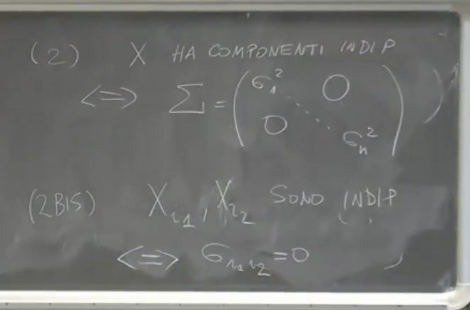 (2) X HA COMPONENTI INDIP
⟺ Σ = ( σ₁² ⋱ 0 0 σₙ² )
(2BIS) X_{i₁}, X_{i₂} SONO INDIP
⟺ σ_{i₁i₂} = 0